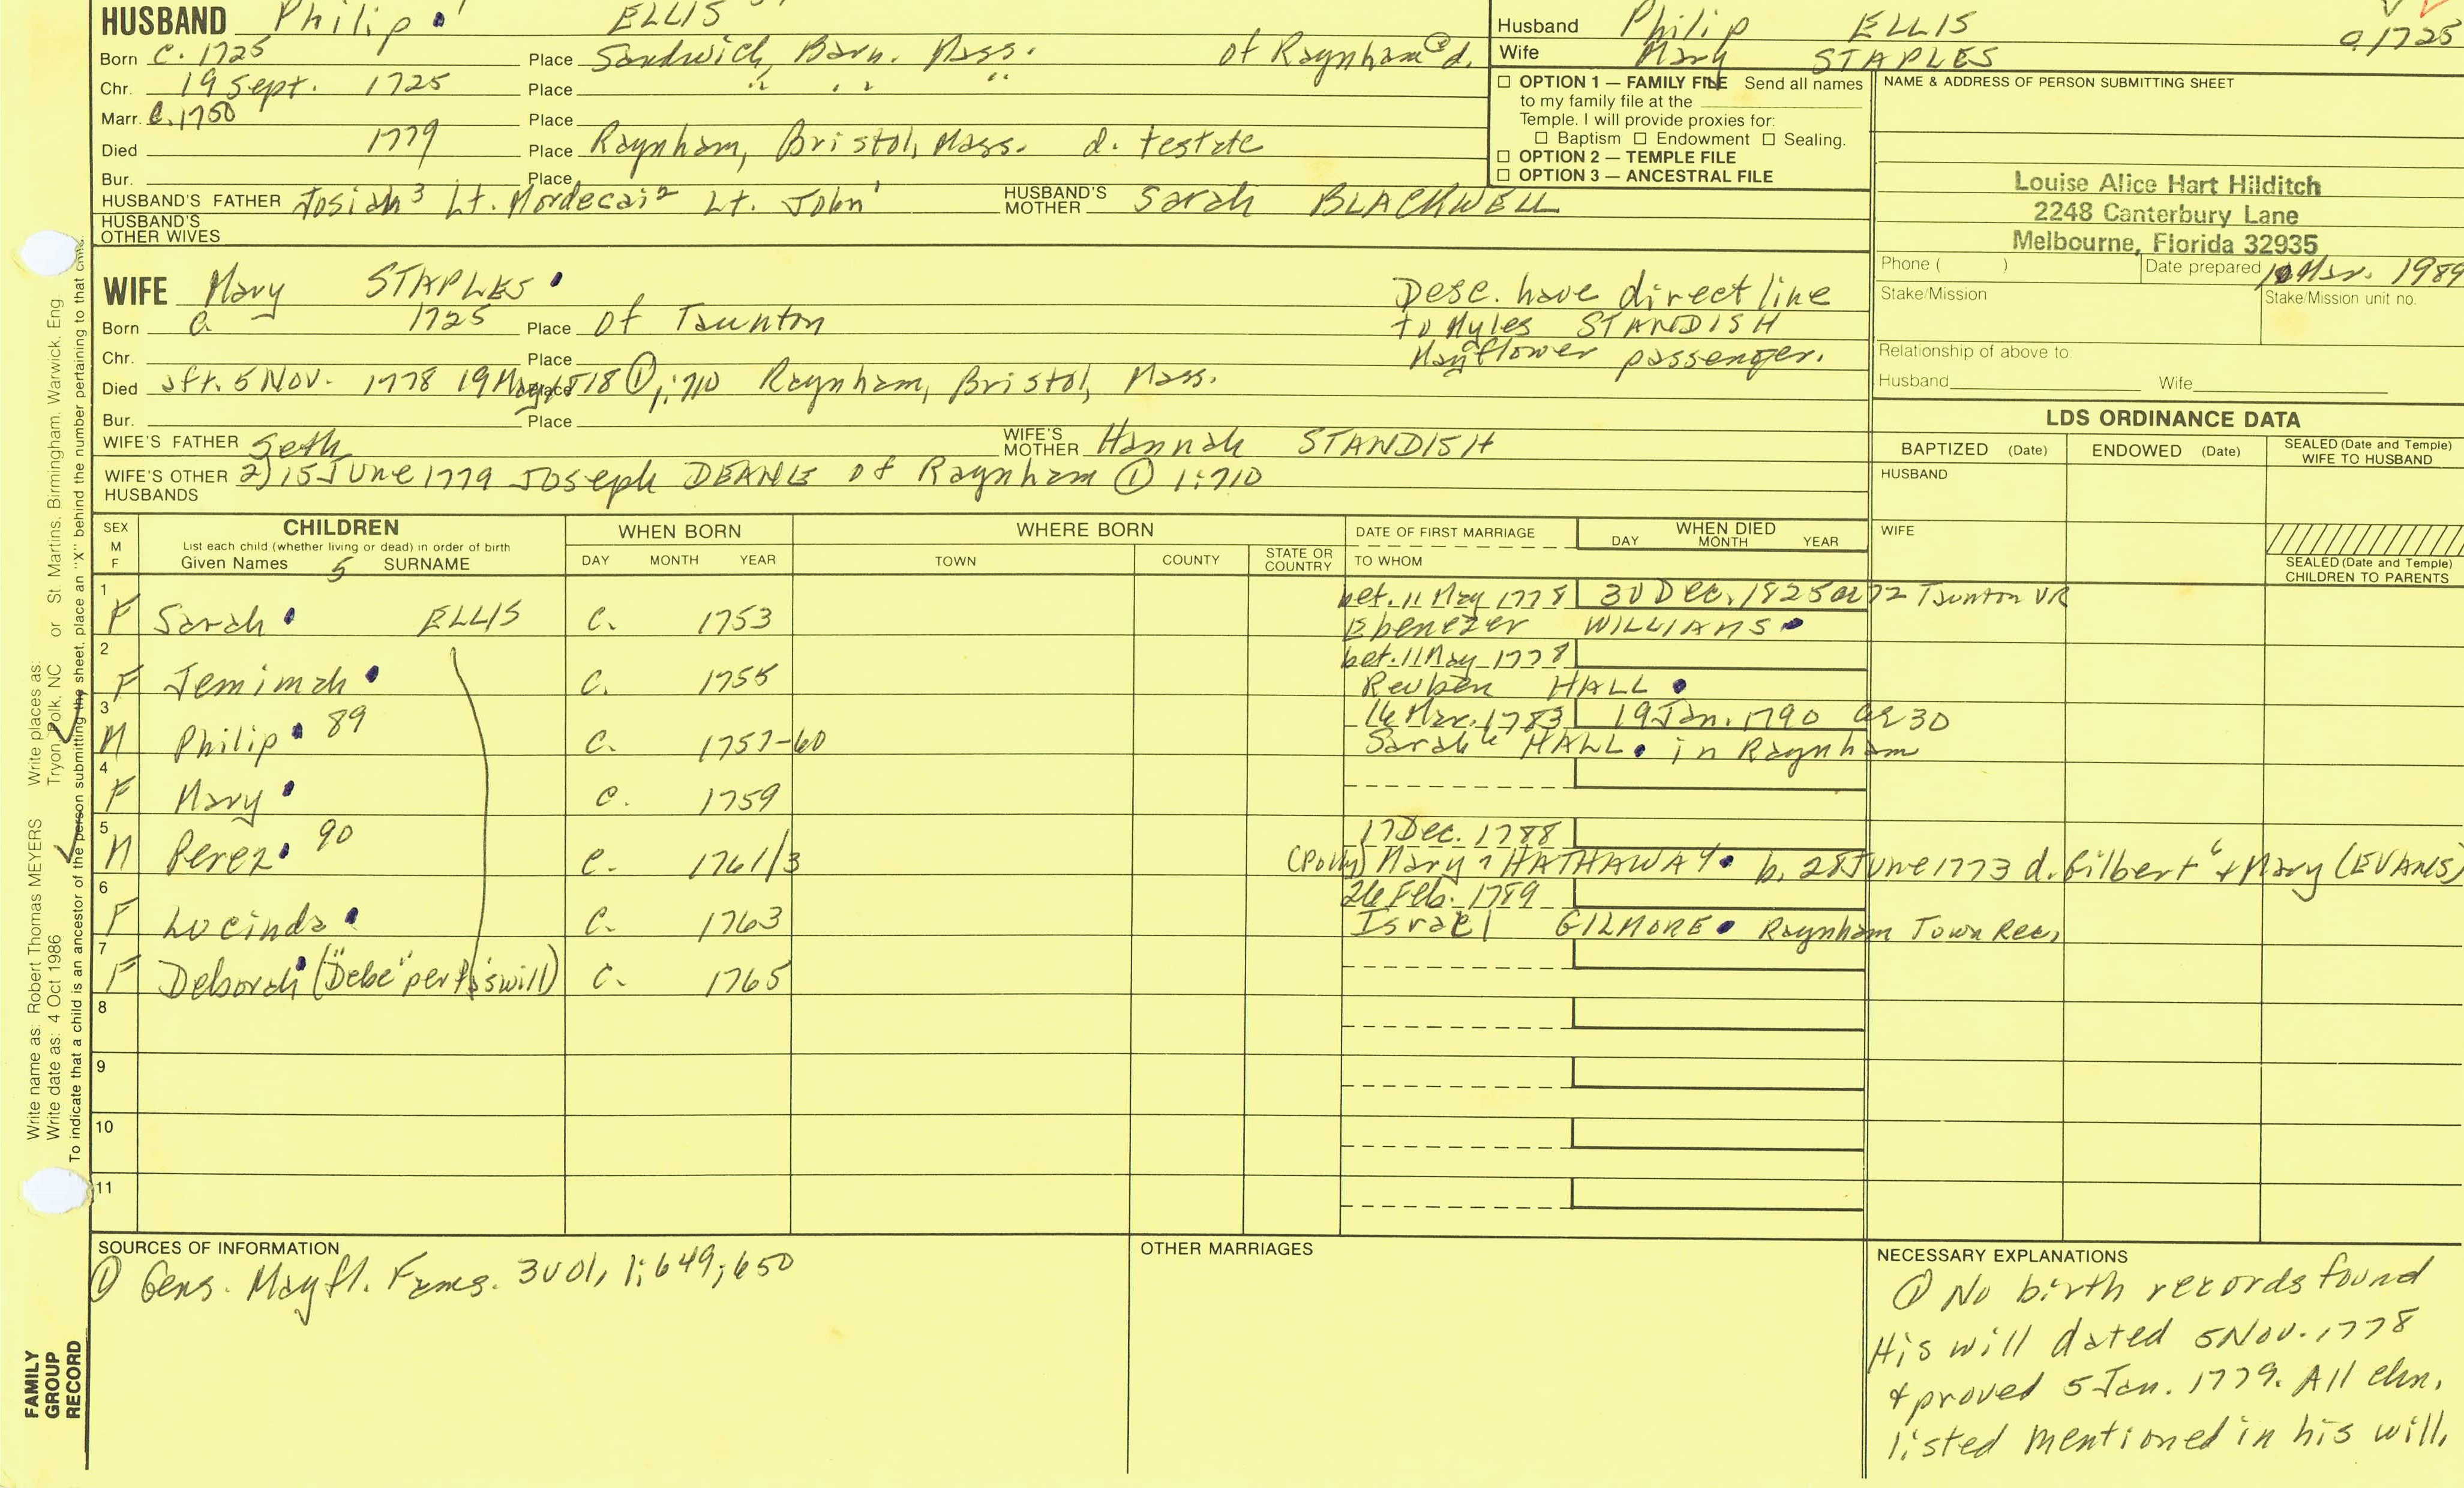 HUSBAND Philip ELLIS
Born C. 1725 Place Sandwich, Barn. Mass. of Raynham @ d.
Chr. 19 Sept. 1725 Place " " "
Marr. C. 1750 Place
Died 1779 Place Raynham, Bristol, Mass. d. testate
Bur. Place
HUSBAND'S FATHER Josiah³ Lt. Mordecai² Lt. John¹ HUSBAND'S MOTHER Sarah BLACKWELL
HUSBAND'S OTHER WIVES
Husband Philip ELLIS
Wife Mary STAPLES
1725
OPTION 1 — FAMILY FILE Send all names
to my family file at the
Temple. I will provide proxies for:
Baptism Endowment Sealing.
OPTION 2 — TEMPLE FILE
OPTION 3 — ANCESTRAL FILE
NAME & ADDRESS OF PERSON SUBMITTING SHEET
Louise Alice Hart Hilditch
2248 Canterbury Lane
Melbourne, Florida 32935
Phone ( ) Date prepared Mar. 1989
Stake/Mission Stake/Mission unit no.
Relationship of above to:
Husband Wife
WIFE Mary STAPLES
Born a 1725 Place Of Taunton
Chr. Place
Died aft. 5 Nov. 1778 19 May 1818 ① 1:710 Place Raynham, Bristol, Mass.
Bur. Place
Desc. have direct line
to Myles STANDISH
Mayflower passenger.
WIFE'S FATHER Seth WIFE'S MOTHER Hannah STANDISH
WIFE'S OTHER HUSBANDS 2) 15 June 1779 Joseph DEANE of Raynham ① 1:710
LDS ORDINANCE DATA
BAPTIZED (Date) ENDOWED (Date) SEALED (Date and Temple) WIFE TO HUSBAND
HUSBAND
WIFE
SEALED (Date and Temple) CHILDREN TO PARENTS
SEX M F
CHILDREN
List each child (whether living or dead) in order of birth
Given Names 5 SURNAME
WHEN BORN
DAY MONTH YEAR
WHERE BORN
TOWN COUNTY STATE OR COUNTRY
DATE OF FIRST MARRIAGE
TO WHOM
WHEN DIED
DAY MONTH YEAR
1 F Sarah ELLIS C. 1753 bet. 11 May 1778 30 Dec. 1825 ae 72 Taunton VR
Ebenezer WILLIAMS
2 F Jemimah C. 1755 bet. 11 May 1778
Reuben HALL
3 M Philip 89 C. 1757-60 16 Mar. 1783 19 Jan. 1790 ae 30
Sarah HALL in Raynham
4 F Mary C. 1759
5 M Perez 90 C. 1761/3 17 Dec. 1788
(Polly) Mary⁷ HATHAWAY b. 28 June 1773 d. Gilbert⁶ + Mary (EVANS)
6 F Lucinda C. 1763 26 Feb. 1789
Israel GILMORE Raynham Town Rec.
7 F Deborah ("Debe" per f's will) C. 1765
8
9
10
11
SOURCES OF INFORMATION
① Gens. Mayfl. Fams. 3 vol, 1:649; 650
OTHER MARRIAGES
NECESSARY EXPLANATIONS
① No birth records found
His will dated 5 Nov. 1778
+ proved 5 Jan. 1779. All chn.
listed mentioned in his will.
Write name as: Robert Thomas MEYERS Write places as:
Write date as: 4 Oct 1986 Tryon, Polk, NC or St. Martins, Birmingham, Warwick, Eng.
To indicate that a child is an ancestor of the person submitting the sheet, place an "X" behind the number pertaining to that child.
FAMILY
GROUP
RECORD